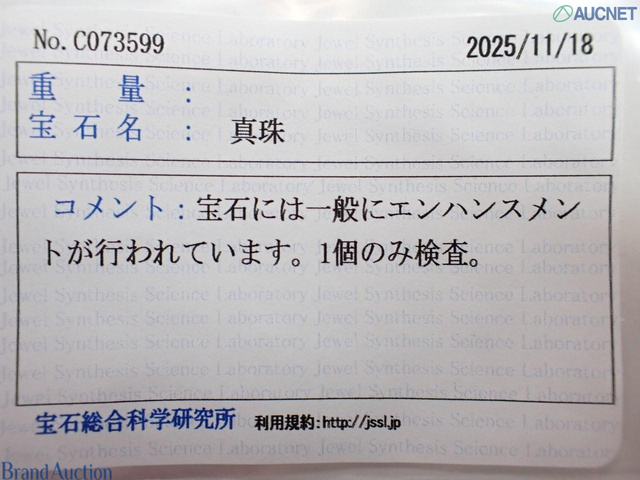 AUCNET
No.C073599 2025/11/18
重 量 :
宝 石 名 : 真珠
コメント:宝石には一般にエンハンスメン
トが行われています。1個のみ検査。
宝石総合科学研究所 利用規約:http://jssl.jp
Brand Auction
Jewel Synthesis Science Laboratory